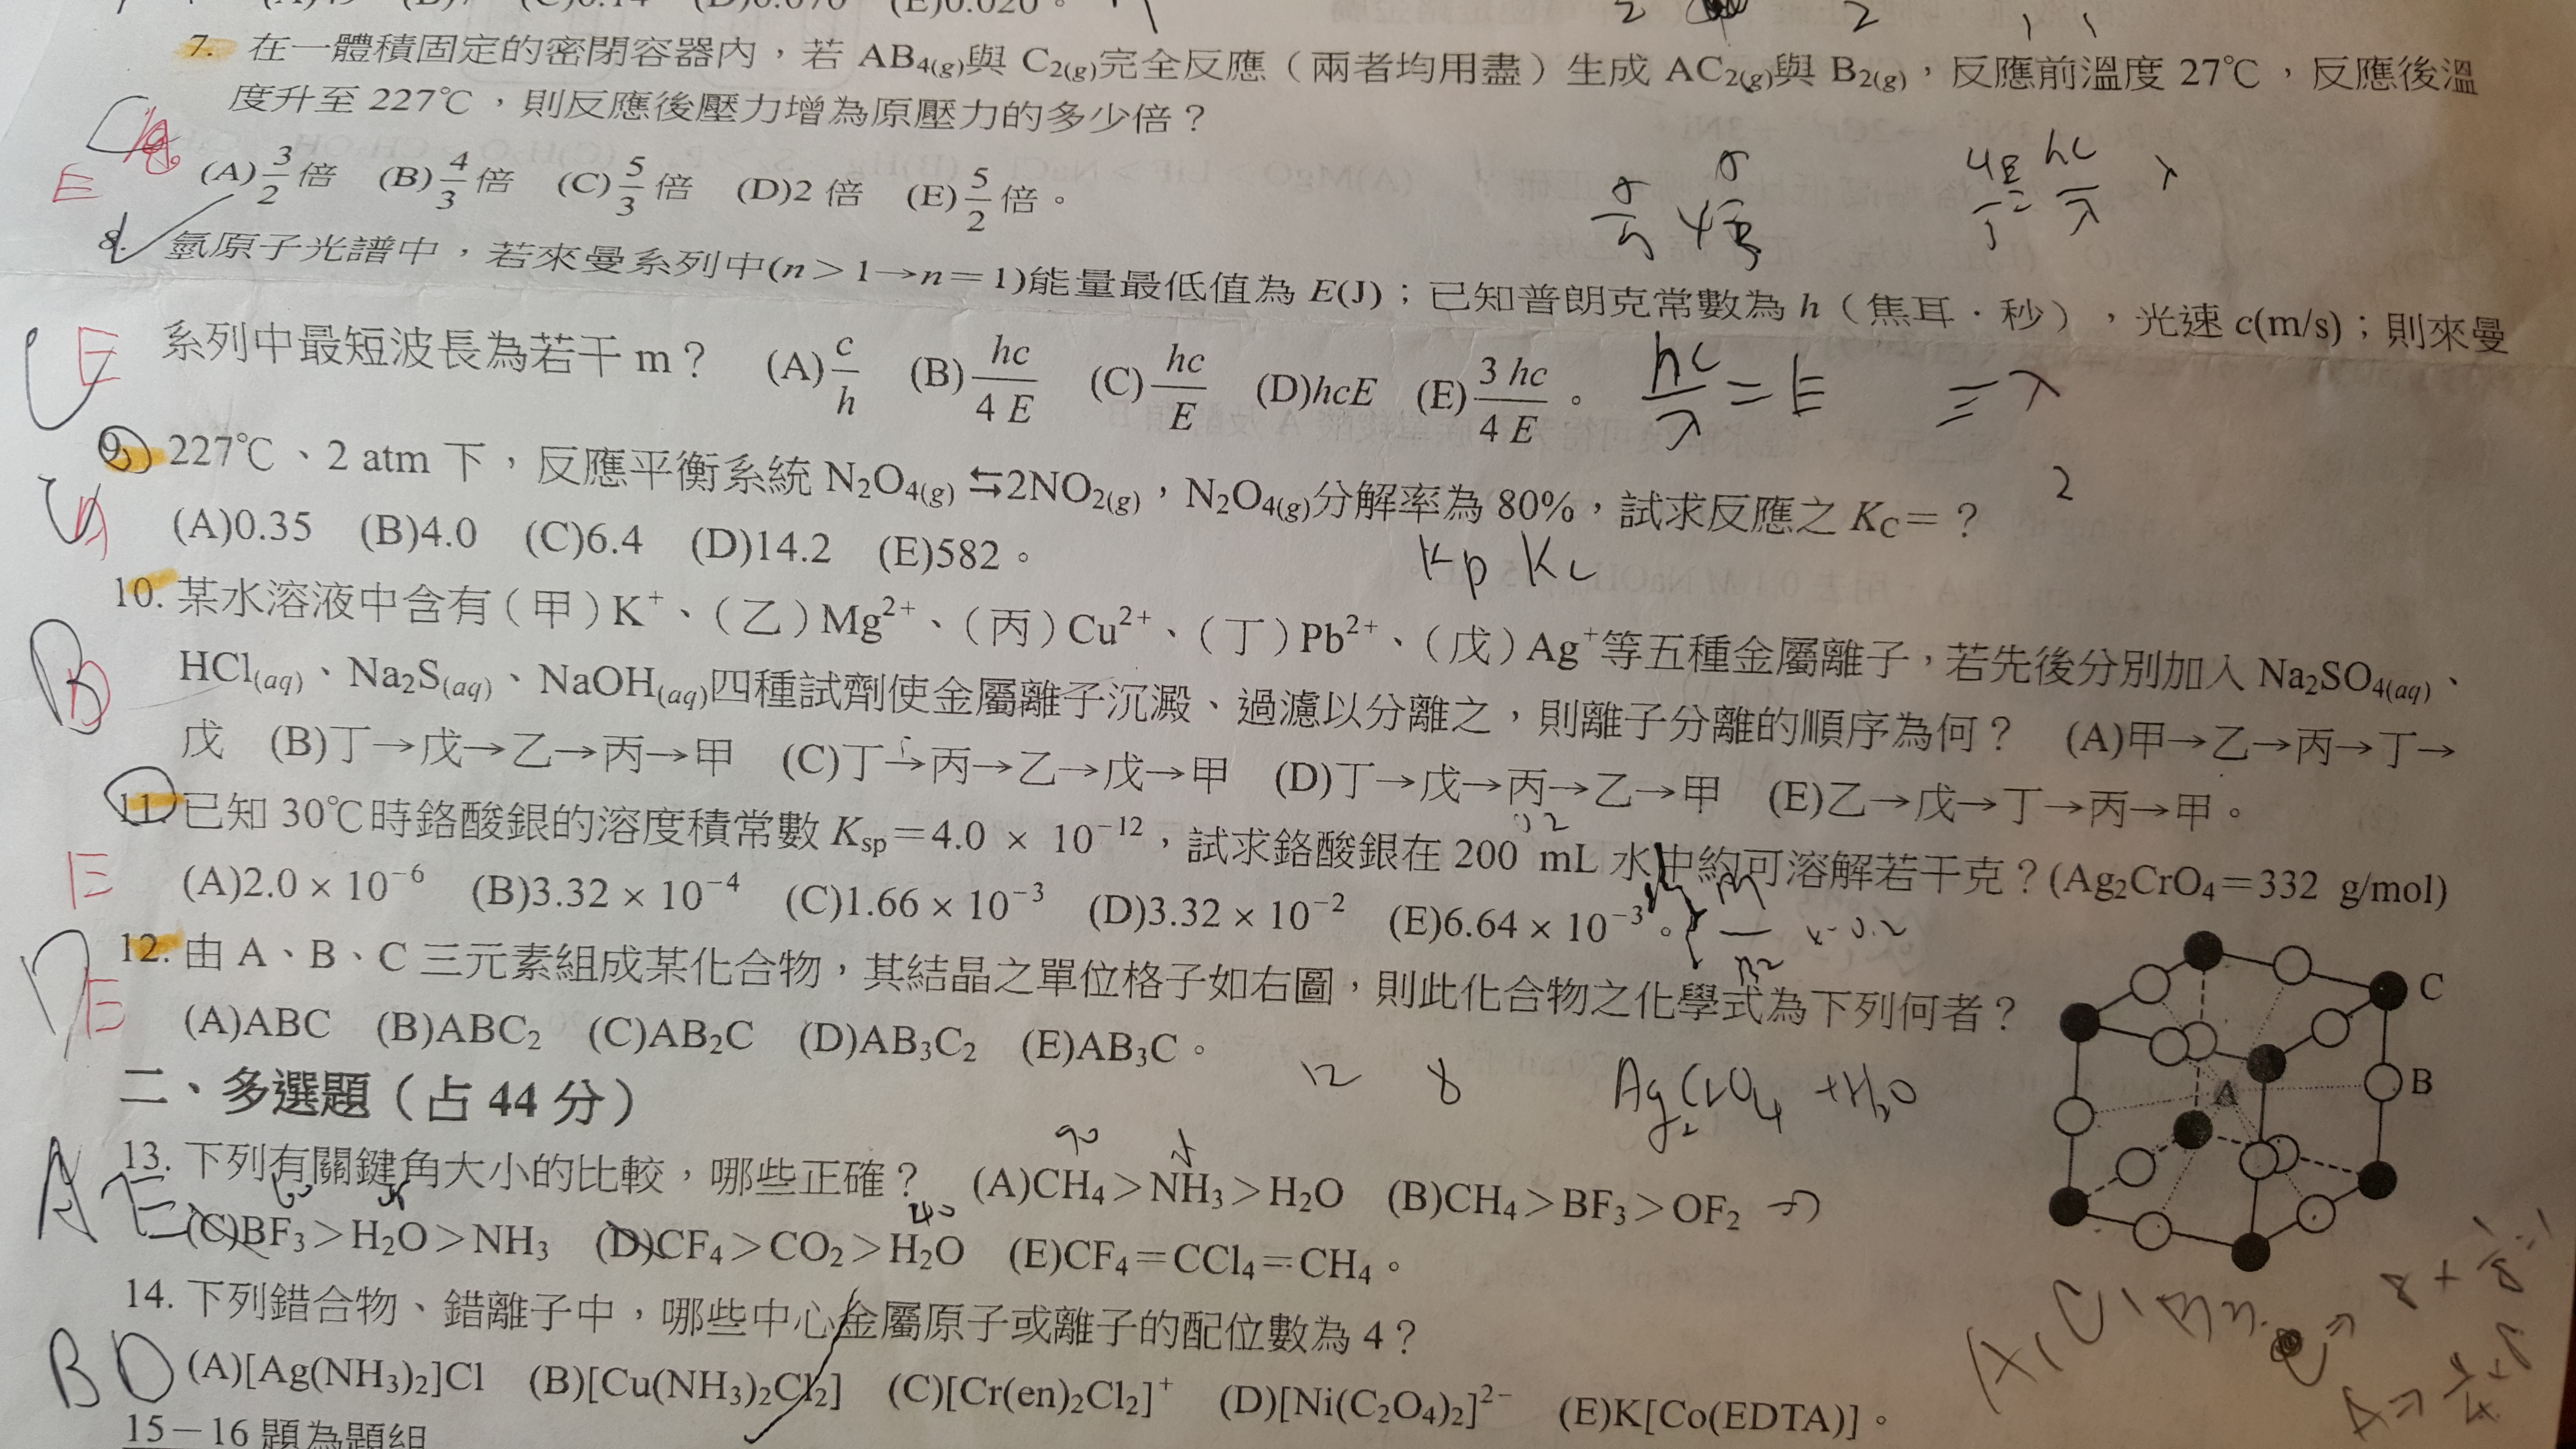 (A)49 (B)7 (C)0.14 (D)0.070 (E)0.020。
7. 在一體積固定的密閉容器內,若 AB4(g)與 C2(g)完全反應(兩者均用盡)生成 AC2(g)與 B2(g),反應前溫度 27℃,反應後溫
度升至 227℃,則反應後壓力增為原壓力的多少倍?
E
(A)3/2倍 (B)4/3倍 (C)5/3倍 (D)2 倍 (E)5/2倍。
8. 氫原子光譜中,若來曼系列中(n>1→n=1)能量最低值為 E(J);已知普朗克常數為 h(焦耳.秒),光速 c(m/s);則來曼
E
系列中最短波長為若干 m? (A)c/h (B)hc/4E (C)hc/E (D)hcE (E)3hc/4E。
hc/λ=E
9. 227℃、2 atm 下,反應平衡系統 N2O4(g)⇆2NO2(g),N2O4(g)分解率為 80%,試求反應之 KC=?
2
(A)0.35 (B)4.0 (C)6.4 (D)14.2 (E)582。
Kp Kc
10. 某水溶液中含有(甲)K+、(乙)Mg2+、(丙)Cu2+、(丁)Pb2+、(戊)Ag+等五種金屬離子,若先後分別加入 Na2SO4(aq)、
B D
HCl(aq)、Na2S(aq)、NaOH(aq)四種試劑使金屬離子沉澱、過濾以分離之,則離子分離的順序為何? (A)甲→乙→丙→丁→
戊 (B)丁→戊→乙→丙→甲 (C)丁→丙→乙→戊→甲 (D)丁→戊→丙→乙→甲 (E)乙→戊→丁→丙→甲。
11. 已知 30℃時鉻酸銀的溶度積常數 Ksp=4.0 × 10−12,試求鉻酸銀在 200 mL 水中約可溶解若干克?(Ag2CrO4=332 g/mol)
E
(A)2.0 × 10−6 (B)3.32 × 10−4 (C)1.66 × 10−3 (D)3.32 × 10−2 (E)6.64 × 10−3。
12. 由 A、B、C 三元素組成某化合物,其結晶之單位格子如右圖,則此化合物之化學式為下列何者?
D E
(A)ABC (B)ABC2 (C)AB2C (D)AB3C2 (E)AB3C。
C
B
A
12 8 Ag2CrO4 +H2O
二、多選題(占 44 分)
13. 下列有關鍵角大小的比較,哪些正確? (A)CH4>NH3>H2O (B)CH4>BF3>OF2
A E
(C)BF3>H2O>NH3 (D)CF4>CO2>H2O (E)CF4=CCl4=CH4。
14. 下列錯合物、錯離子中,哪些中心金屬原子或離子的配位數為 4?
B D
(A)[Ag(NH3)2]Cl (B)[Cu(NH3)2Cl2] (C)[Cr(en)2Cl2]+ (D)[Ni(C2O4)2]2− (E)K[Co(EDTA)]。
15-16 題為題組